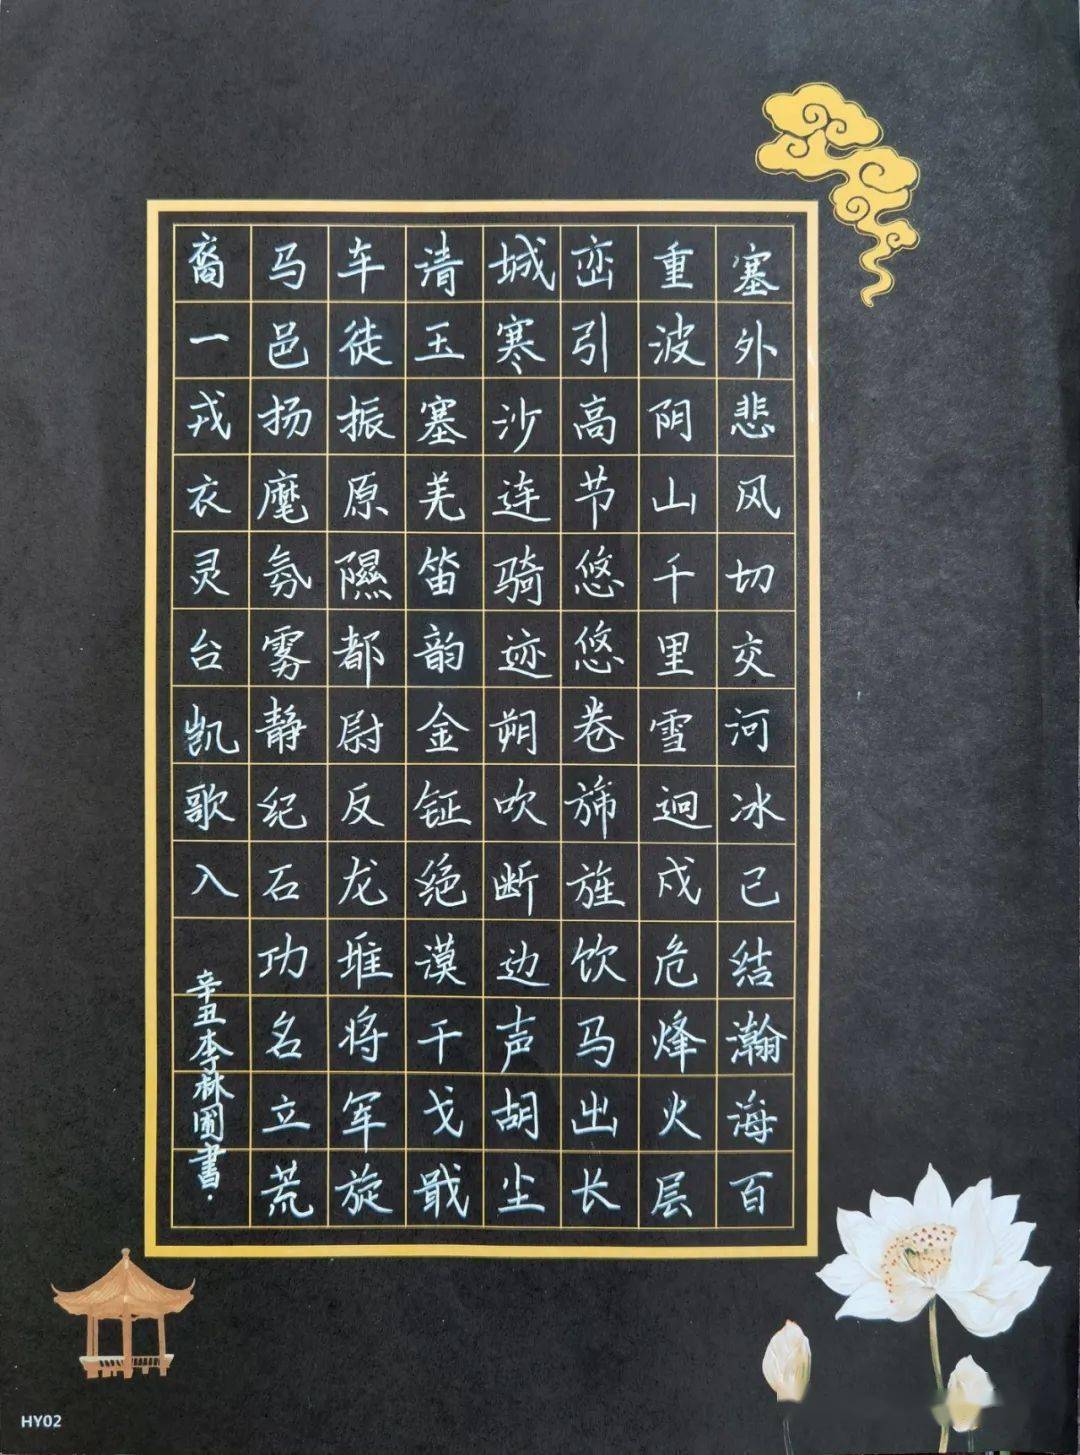 塞外悲风切交河冰已结瀚海百
重波阴山千里雪迥戍危烽火层
峦引高节悠悠卷旆旌饮马出长
城寒沙连骑迹朔吹断边声胡尘
清玉塞羌笛韵金钲绝漠干戈戢
车徒振原隰都尉反龙堆将军旋
马邑扬麾氛雾静纪石功名立荒
裔一戎衣灵台凯歌入
辛丑李林圃書
HY02